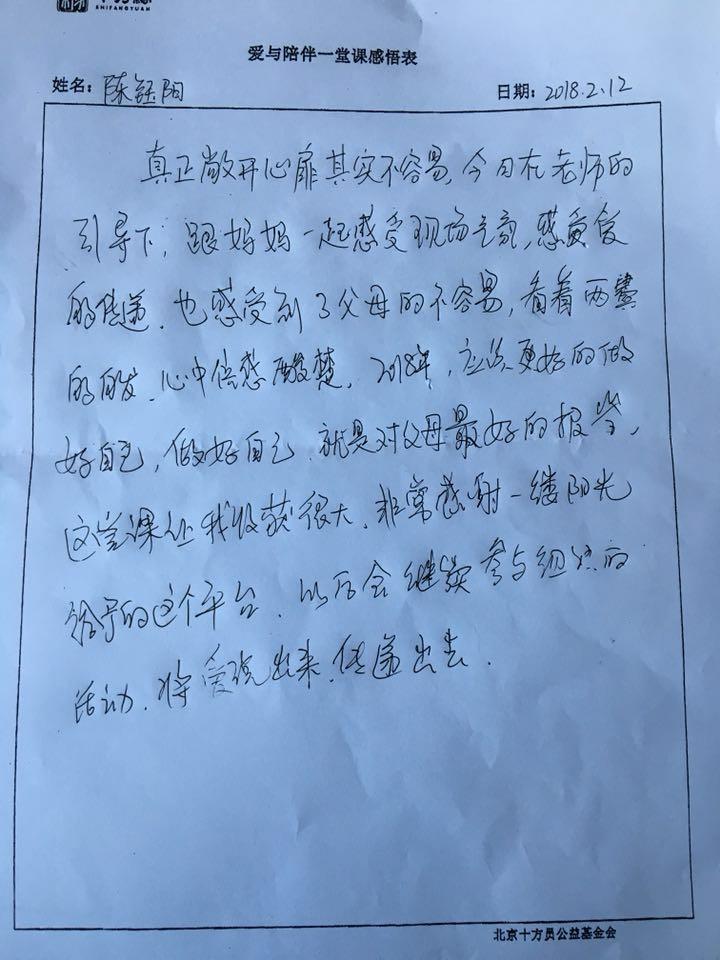 SHIFANGYUAN
爱与陪伴一堂课感悟表
姓名：陈钰阳
日期：2018.2.12
真正敞开心扉其实不容易，今日在老师的
引导下，跟妈妈一起感受现场气氛，感受爱
的传递，也感受到了父母的不容易，看着两鬓
的白发，心中倍感酸楚，2018年，应该更好的做
好自己，做好自己，就是对父母最好的报答，
这堂课让我收获很大，非常感谢一缕阳光
给予的这个平台，以后会继续参与组织的
活动，将爱说出来，传递出去．
北京十方员公益基金会